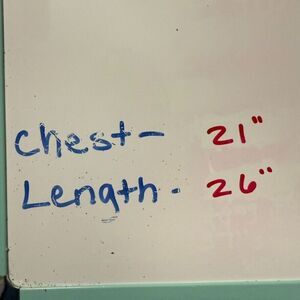 Chest- 21"
Length- 26"